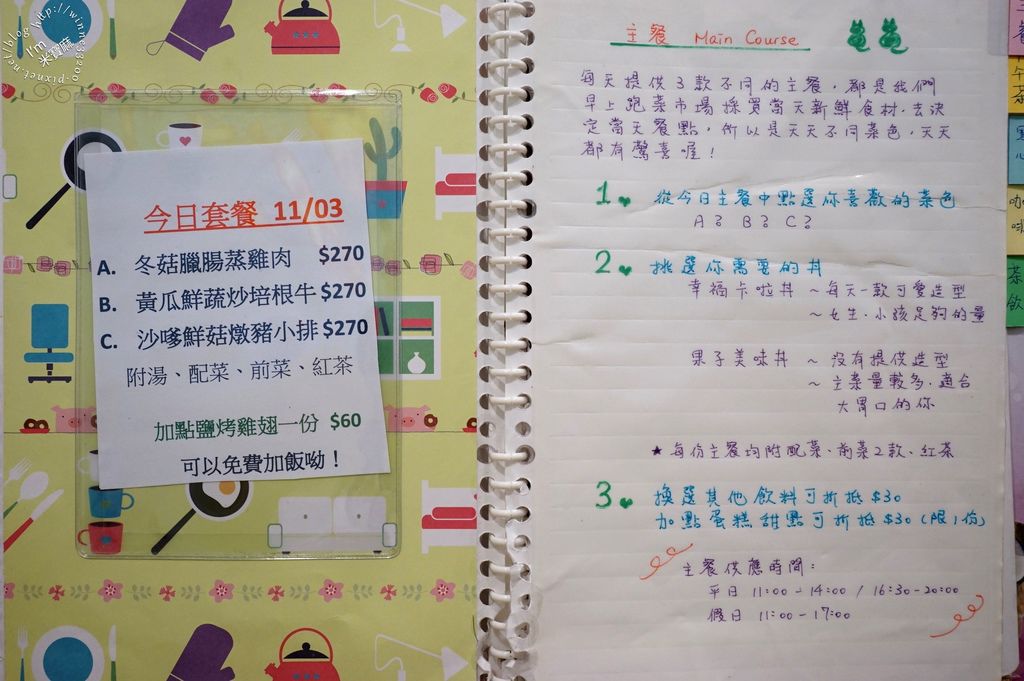 http://winne3200.pixnet.net/blog
I'm
米寶麻
今日套餐 11/03
A. 冬菇臘腸蒸雞肉 $270
B. 黃瓜鮮蔬炒培根牛 $270
C. 沙嗲鮮菇燉豬小排 $270
附湯、配菜、前菜、紅茶
加點鹽烤雞翅一份 $60
可以免費加飯呦！
主餐 Main Course
每天提供3款不同的主餐，都是我們
早上跑菜市場採買當天新鮮食材．去決
定當天餐點，所以是天天不同菜色，天天
都有驚喜喔！
1 從今日主餐中點選你喜歡的菜色
A？ B？ C？
2 挑選你需要的丼
幸福卡啦丼 ~ 每天一款可愛造型
~ 女生．小孩足夠的量
果子美味丼 ~ 沒有提供造型
~ 主菜量較多．適合
大胃口的你
★ 每份主餐均附配菜、前菜2款、紅茶
3 換選其他飲料可折抵 $30
加點蛋糕甜點可折抵 $30 (限1份)
主餐供應時間：
平日 11:00 - 14:00 / 16:30 - 20:00
假日 11:00 - 17:00
主餐
午茶
點心
咖啡
茶飲